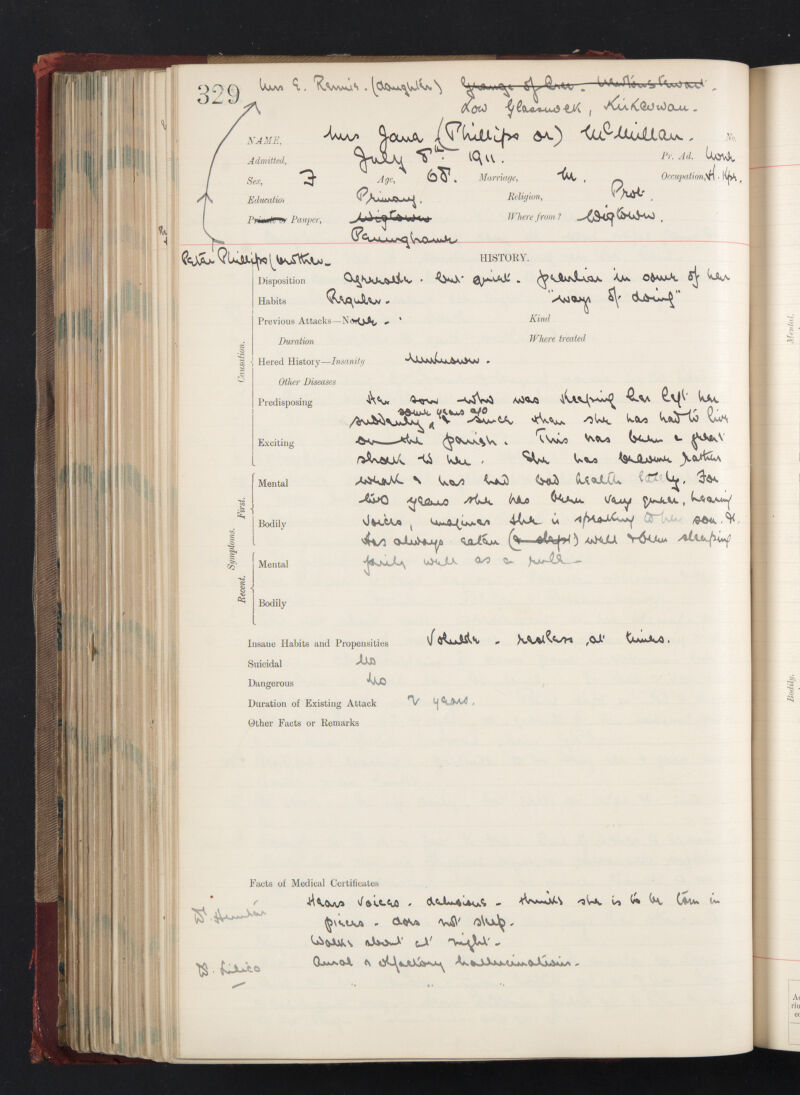 329 Mrs E. Rennie. (daughter) Grange of Cree. Newton Stewart.
Low Glasnock, Kirkcowan.
NAME, Mrs Jane (Phillips or) McMillan. No.
Admitted, July 8th. 1911. Pr. Ad. None
Sex, F Age, 68. Marriage, M. Occupation, H. Kpr.
Education Primary. Religion, Prot.
Private or Pauper, Wigtown Where from? Wigtown.
Penninghame
Peter Phillips (brother.
HISTORY.
Disposition Agreeable. but quiet. peculiar in some of her
Habits Regular. "ways of doing"
Previous Attacks—None. Kind
Duration Where treated
Hered History—Insanity Unknown.
Other Diseases
Causation.
Predisposing Her son who was keeping her left her
suddenly some years ago & since then she has had to live
Exciting on the parish. This has been a great
shock to her. She has become rather
Mental weak & has had bad health lately. For
two years she has been very queer, hearing
Bodily voices, imagines she is speaking to her son. &c.
Has always eaten (& slept) well & been sleeping
Mental fairly well as a rule
Bodily
Symptoms.
First.
Recent.
Insane Habits and Propensities Voluble - restless at times.
Suicidal No
Dangerous No
Duration of Existing Attack 2 years.
Other Facts or Remarks
Facts of Medical Certificates
Hears voices. delusions - thinks she is to be torn in
pieces - does not sleep.
Walks about at night.
Dr. Lilico Aural & olfactory hallucinations.
" "
Mental.
Bodily.